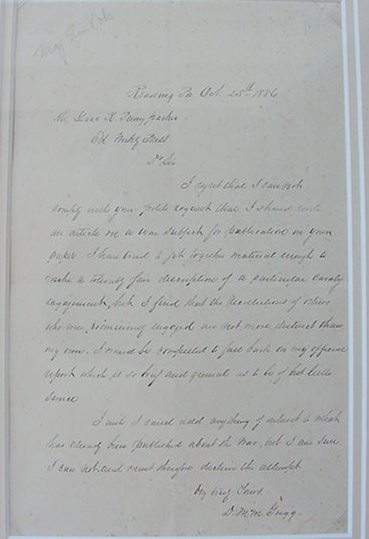 Reading Pa Oct. 25th 1886
Mr Isaac R. Pennypacker
Ed. Weekly Press
Dr Sir
I regret that I can not
comply with your polite request that I should write
an article on a war subject for publication in your
paper. I have tried to get together material enough to
make a tolerably fair description of a particular cavalry
engagement, but I find that the recollections of others
who were engaged are not more distinct than
my own. I would be compelled to fall back on my official
report which is so brief and general as to be of but little
service
I wish I could add anything of interest to what
has already been published about the War, but I am sure
I can not and must therefore decline the attempt
Very Yours
D. McM. Gregg